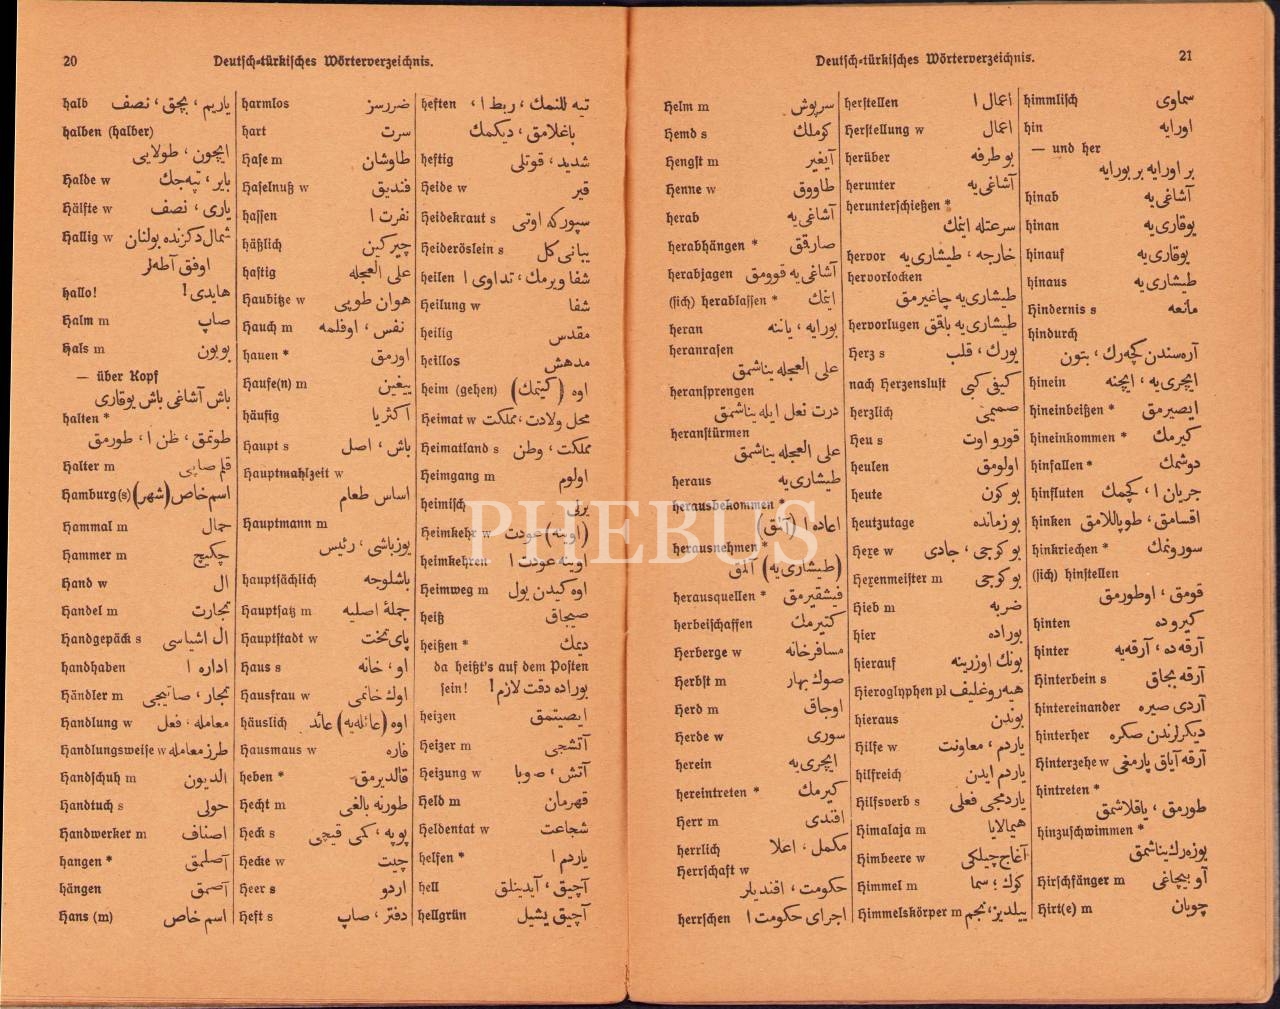 20
Deutsch-türkisches Wörterverzeichnis.
halb یاریم ، بچق ، نصف
halben (halber)
ایچون ، طولایی
Halde w بایر ، تپه‌جك
Hälfte w یاری ، نصف
Hallig w شمال دكزنده بولنان
اوفق آطه‌لر
hallo! هایدی !
Halm m صاپ
Hals m بویون
— über Kopf
باش آشاغی باش یوقاری
halten *
طوتمق ، ظن ا ، طورمق
Halter m قلم صاپی
Hamburg (s) اسم خاص (شهر)
Hammal m حمال
Hammer m چكیج
Hand w ال
Handel m تجارت
Handgepäck s ال اشیاسی
handhaben اداره ا
Händler m تجار ، صاتیجی
Handlung w معامله ، فعل
Handlungsweise w طرز معامله
Handschuh m الدیون
Handtuch s حولی
Handwerker m اصناف
hangen * آصلمق
hängen آصمق
Hans (m) اسم خاص
harmlos ضررسز
hart سرت
Hase m طاوشان
Haselnuß w فندیق
hassen نفرت ا
häßlich چیركین
hastig علی العجله
Haubitze w هوان طوپی
Hauch m نفس ، اوفلمه
hauen * اورمق
Haufe(n) m ییغین
häufig اكثریا
Haupt s باش ، اصل
Hauptmahlzeit w
اساس طعام
Hauptmann m
یوزباشی ، رئیس
hauptsächlich باشلوجه
Hauptsatz m جملهٔ اصلیه
Hauptstadt w پای تخت
Haus s او ، خانه
Hausfrau w اوك خانمی
häuslich اوه (عائله‌یه) عائد
Hausmaus w فاره
heben * قالدیرمق
Hecht m طورنه بالغی
Heck s پوپه ، كمی قیچی
Hecke w چیت
Heer s اردو
Heft s دفتر ، صاپ
heften تپه للنمك ، ربط ا ،
باغلامق ، دیكمك
heftig شدید ، قوتلی
Heide w قیر
Heidekraut s سپوركه اوتی
Heideröslein s یبانی كل
heilen شفا ویرمك ، تداوی ا
Heilung w شفا
heilig مقدس
heillos مدهش
heim (gehen) اوه (كیتمك)
Heimat w محل ولادت ، مملكت
Heimatland s مملكت ، وطن
Heimgang m اولوم
heimisch یرلی
Heimkehr w (اوینه) عودت
heimkehren اوینه عودت ا
Heimweg m اوه كیدن یول
heiß صیجاق
heißen * دیمك
da heißt's auf dem Posten
sein! بوراده دقت لازم !
heizen ایصیتمق
Heizer m آتشجی
Heizung w آتش ، صوبا
Held m قهرمان
Heldentat w شجاعت
helfen * یاردم ا
hell آچیق ، آیدینلق
hellgrün آچیق یشیل
21
Deutsch-türkisches Wörterverzeichnis.
Helm m سرپوش
Hemd s كوملك
Hengst m آیغیر
Henne w طاووق
herab آشاغی‌یه
herabhängen * صارقمق
herabjagen آشاغی یه قوومق
(sich) herablassen * ایتمك
heran بورایه ، یاننه
heranrasen
علی العجله یناشمق
heransprengen
درت نعل ایله یناشمق
heranstürmen
علی العجله یناشمق
heraus طیشاری‌یه
herausbekommen *
اعاده ا (آلمق)
herausnehmen *
(طیشاری یه) آلمق
herausquellen * فیشقیرمق
herbeischaffen كتیرمك
Herberge w مسافرخانه
Herbst m صوك بهار
Herd m اوجاق
Herde w سوری
herein ایچری‌یه
hereintreten * كیرمك
Herr m افندی
herrlich مكمل ، اعلا
Herrschaft w
حكومت ، افندیلر
herrschen اجرای حكومت ا
herstellen اعمال ا
Herstellung w اعمال
herüber بو طرفه
herunter آشاغی‌یه
herunterschießen *
سرعتله اینمك
hervor خارجه ، طیشاری‌یه
hervorlocken
طیشاری‌یه چاغیرمق
hervorlugen طیشاری‌یه باقمق
Herz s یورك ، قلب
nach Herzenslust كیفی كبی
herzlich صمیمی
Heu s قورو اوت
heulen اولومق
heute بو كون
heutzutage بو زمانده
Hexe w بو كوجی ، جادی
Hexenmeister m بو كوجی
Hieb m ضربه
hier بوراده
hierauf بونك اوزرینه
Hieroglyphen pl هیه‌روغلیف
hieraus بوندن
Hilfe w یاردم ، معاونت
hilfreich یاردم ایدن
Hilfsverb s یاردمجی فعلی
Himalaja m هیمالایا
Himbeere w آغاج چیلكی
Himmel m كوك ؛ سما
Himmelskörper m ییلدیز ، نجم
himmlisch سماوی
hin اورایه
— und her
بر اورایه بر بورایه
hinab آشاغی‌یه
hinan یوقاری‌یه
hinauf یوقاری‌یه
hinaus طیشاری‌یه
Hindernis s مانعه
hindurch
آره‌سندن كچه‌رك ، بتون
hinein ایچری‌یه ، ایچنه
hineinbeißen * ایصیرمق
hineinkommen * كیرمك
hinfallen * دوشمك
hinfluten جریان ا ، كچمك
hinken اقسامق ، طوپاللامق
hinkriechen * سورونمك
(sich) hinstellen
قومق ، اوطورمق
hinten كیروده
hinter آرقه‌ده ، آرقه‌یه
Hinterbein s آرقه بجاق
hintereinander آردی صیره
hinterher دیكرلرندن صكره
Hinterzehe w آرقه آیاق پارمغی
hintreten *
طورمق ، یاقلاشمق
hinzuschwimmen *
یوزه‌رك یناشمق
Hirschfänger m آو بیچاغی
Hirt(e) m چوبان
PHEBUS